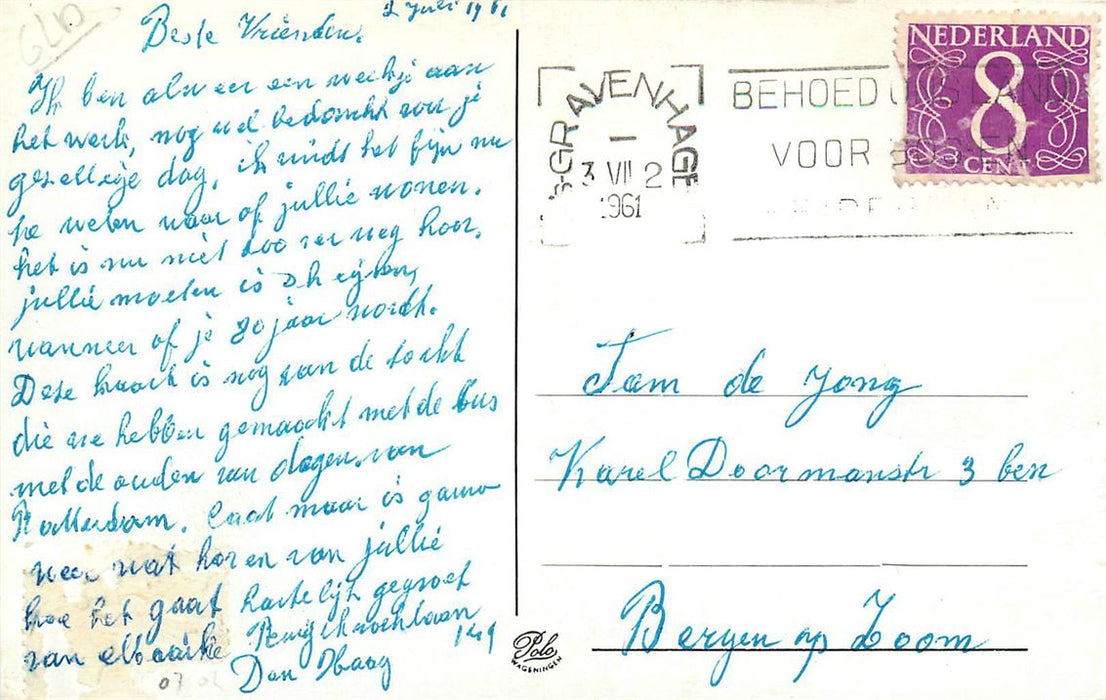 GLD
2 Juli 1961
Beste Vrienden.
Ik ben al weer een weekje aan
het werk, nog wel bedankt voor je
gesellige dag, ik vindt het fijn nu
te weten waar of jullie wonen.
het is nu niet zoo ver weg hoor.
jullie moeten is
wanneer of je 80 jaar wordt.
Deze kaart is nog van de tocht
die we hebben gemaakt met de bus
met de ouden van dagen. van
Rotterdam. Laat maar is gauw
weer wat horen van jullie
hoe het gaat
van
hartelijk gegroet
149
Den Haag
07 02
Polo
WAGENINGEN
NEDERLAND
8
CENT
'S-GRAVENHAGE
3 VII 2
1961
BEHOED
VOOR
Fam de Jong
Karel Doormanstr 3 ben
Bergen op Zoom